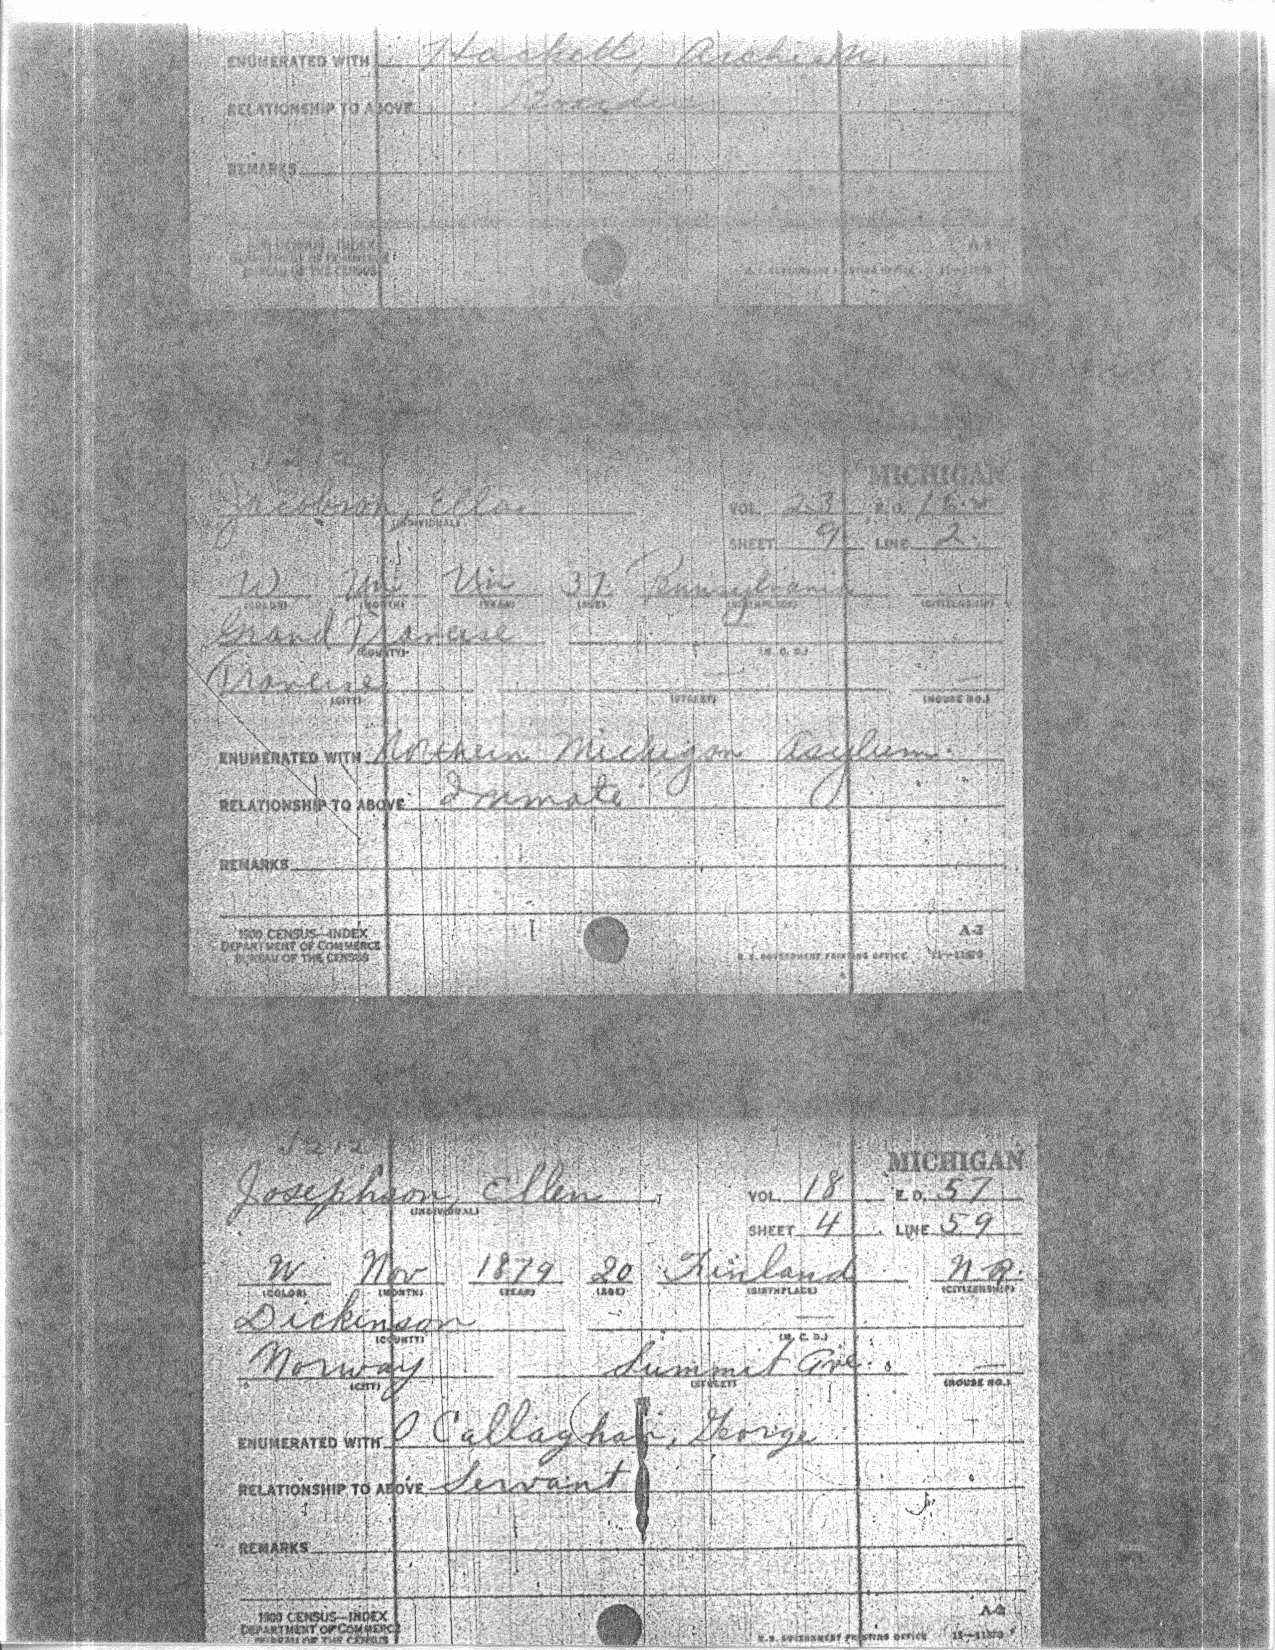 ENUMERATED WITH Hackett,
RELATIONSHIP TO ABOVE
REMARKS
BUREAU OF THE CENSUS
MICHIGAN
Jacobson, Ella
(INDIVIDUAL)
VOL. 23 E.D.
SHEET 9 LINE 2
W Un Un 37 Pennsylvania
(COLOR) (MONTH) (YEAR) (AGE) (BIRTHPLACE) (CITIZENSHIP)
Grand Traverse
(COUNTY) (M. C. D.)
Traverse
(CITY) (STREET) (HOUSE NO.)
ENUMERATED WITH Northern Michigan Asylum.
RELATIONSHIP TO ABOVE Inmate
REMARKS
1900 CENSUS—INDEX
DEPARTMENT OF COMMERCE
BUREAU OF THE CENSUS
A-2
U. S. GOVERNMENT PRINTING OFFICE
1212
MICHIGAN
Josephson, Ellen
(INDIVIDUAL)
VOL. 18 E.D. 57
SHEET 4 LINE 59
W Nov 1879 20 Finland N.R.
(COLOR) (MONTH) (YEAR) (AGE) (BIRTHPLACE) (CITIZENSHIP)
Dickinson —
(COUNTY) (M. C. D.)
Norway Summit Ave. —
(CITY) (STREET) (HOUSE NO.)
ENUMERATED WITH O Callaghan, George
RELATIONSHIP TO ABOVE Servant
REMARKS
1900 CENSUS—INDEX
DEPARTMENT OF COMMERCE
BUREAU OF THE CENSUS
A-2
U. S. GOVERNMENT PRINTING OFFICE